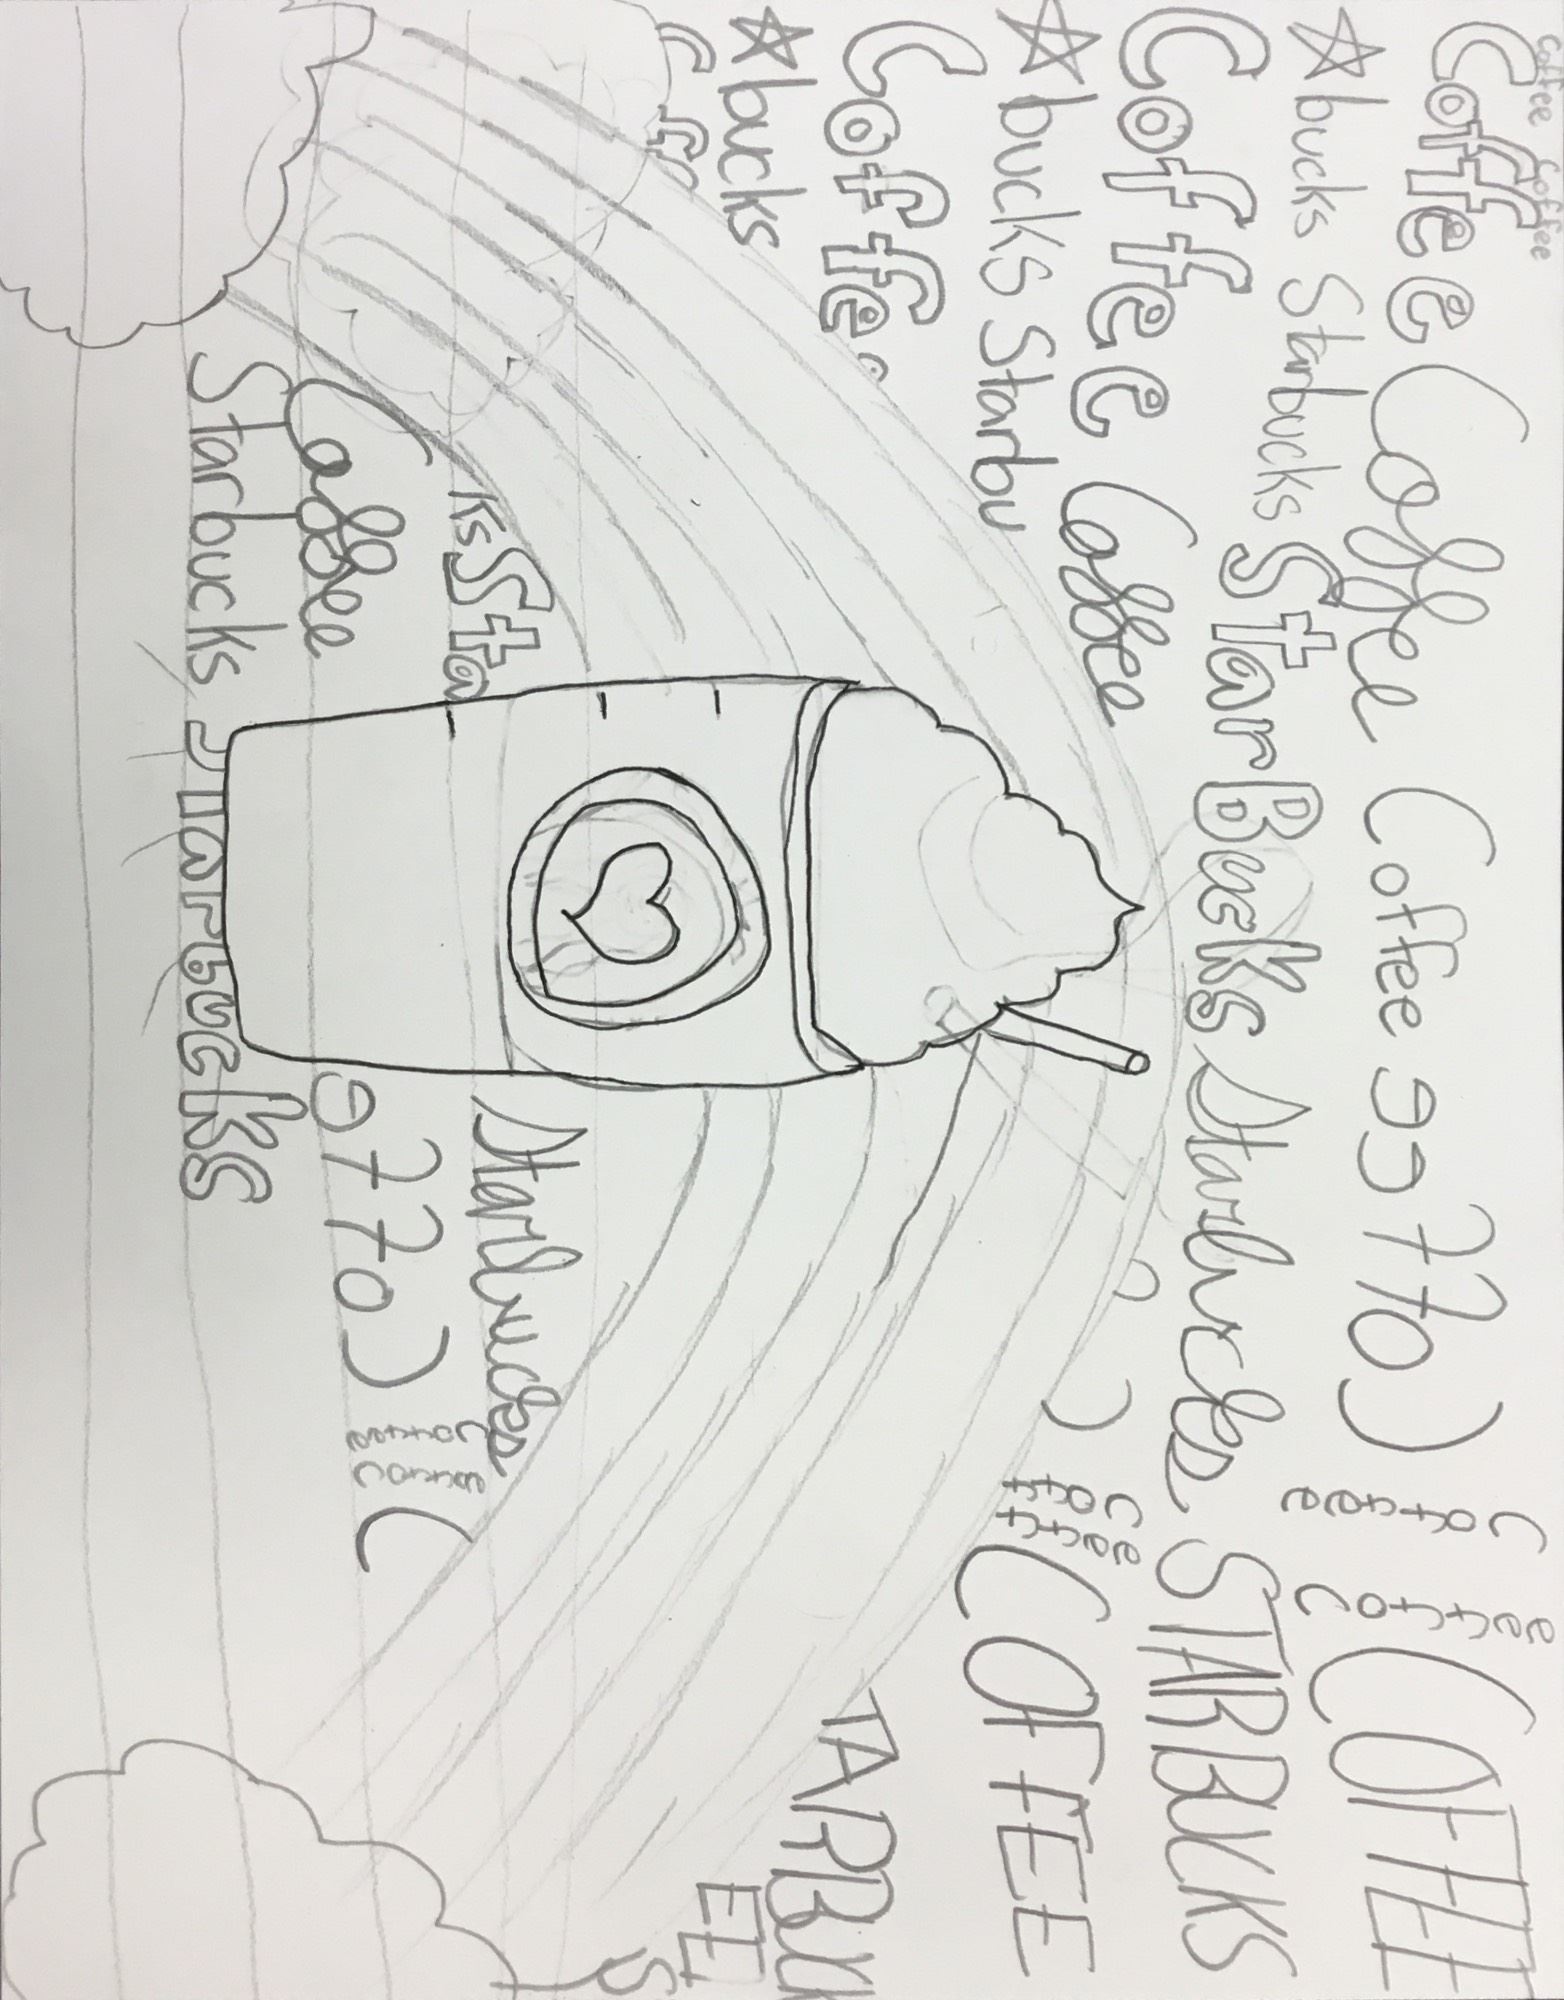 Coffee Coffee
Coffee Coffee Coffee eeffoC Coffee Coffee COFFEE
☆bucks Starbucks StarBucks Starbucks STARBUCKS
Coffee Coffee C Coff Coffee COFFEE
☆bucks Starbu TARBU
Coffee EE
☆bucks S
ks Sta Starbucks
Coffee effoC Coffee Coffee C
Starbucks Starbucks